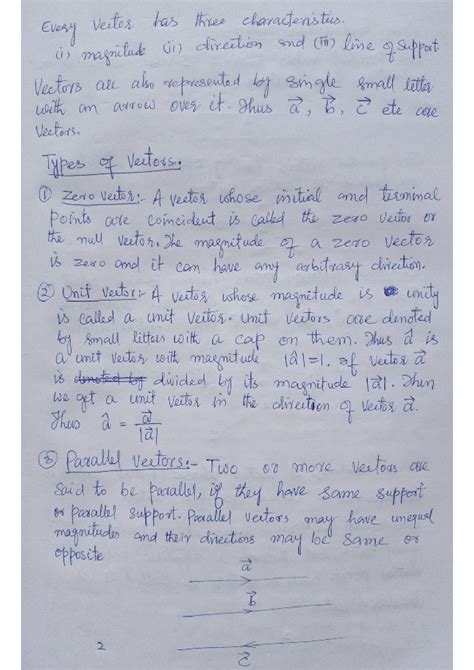 Every Vector has three characteristics.
(i) magnitude (ii) direction and (iii) line of support
Vectors are also represented by single small letter
with an arrow over it. Thus a⃗, b⃗, c⃗ etc are
Vectors.
Types of Vectors:-
① Zero vector:- A vector whose initial and terminal
points are coincident is called the zero vector or
the null vector. The magnitude of a zero vector
is zero and it can have any arbitrary direction.
② Unit vector:- A vector whose magnitude is unity
is called a unit vector. Unit vectors are denoted
by small letters with a cap on them. Thus â is
a unit vector with magnitude |â|=1. If vector a⃗
is denoted by divided by its magnitude |a⃗|. Then
we get a unit vector in the direction of vector a⃗.
Thus â = a⃗/|a⃗|
③ Parallel Vectors:- Two or more vectors are
said to be parallel, if they have same support
or parallel support. Parallel vectors may have unequal
magnitudes and their directions may be same or
opposite
a⃗
b⃗
c⃗
2